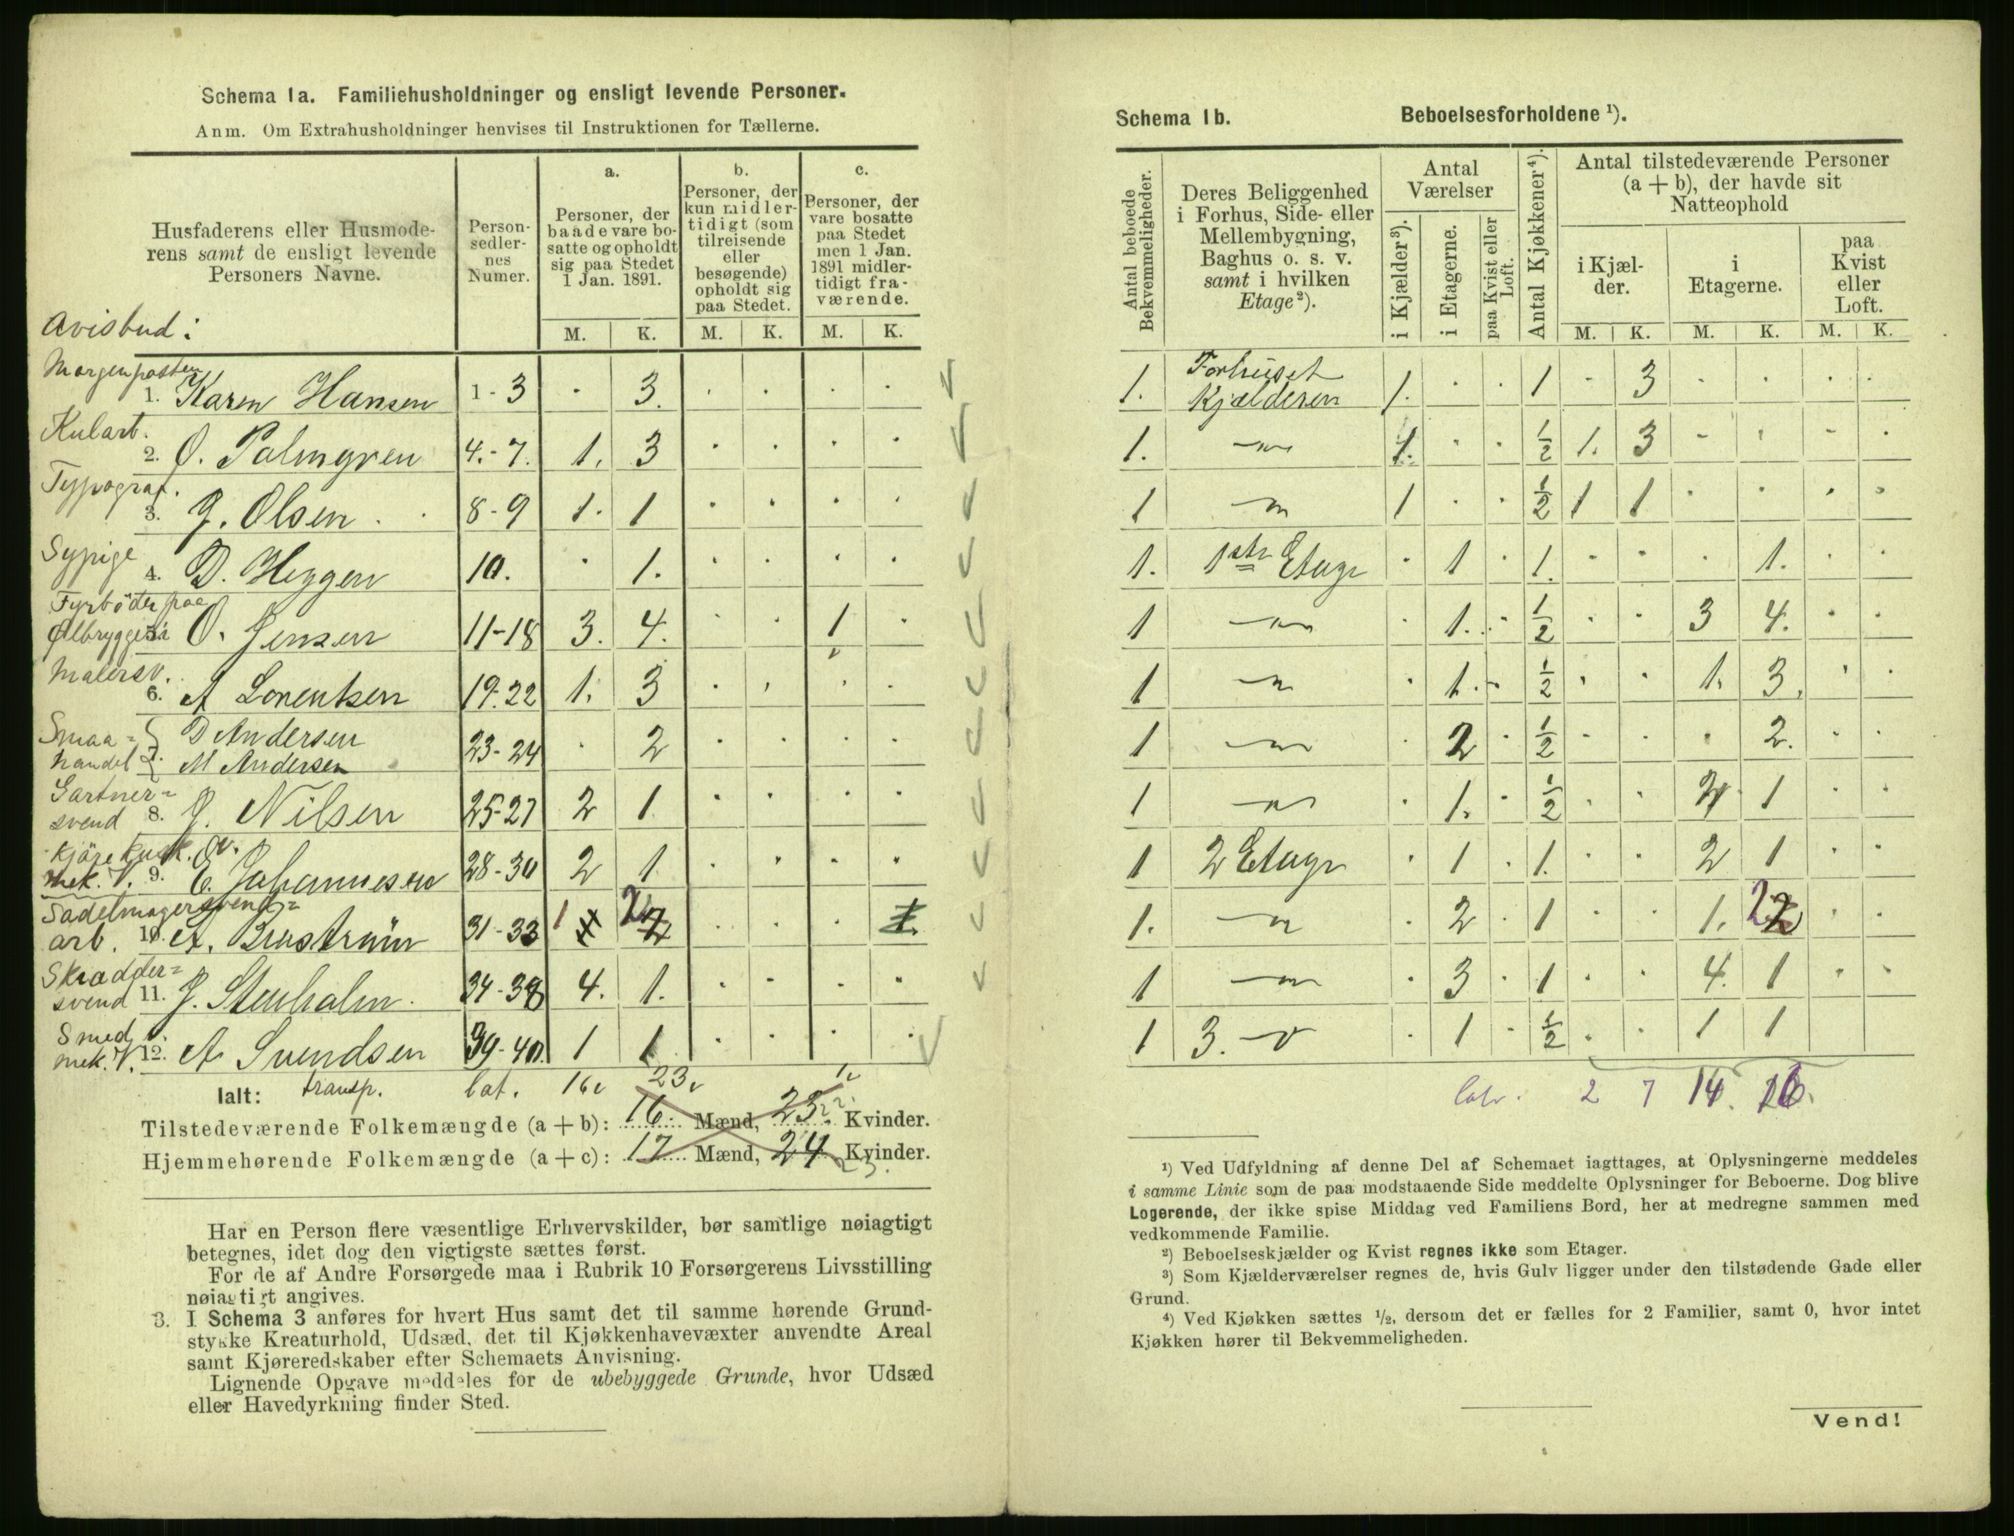 Schema 1a. Familiehusholdninger og ensligt levende Personer.
Anm. Om Extrahusholdninger henvises til Instruktionen for Tællerne.
Husfaderens eller Husmode-
rens samt de ensligt levende
Personers Navne.
Person-
sedler-
nes
Numer.
a.
Personer, der
baade vare bo-
satte og opholdt
sig paa Stedet
1 Jan. 1891.
b.
Personer, der
kun midler-
tidigt (som
tilreisende
eller
besøgende)
opholdt sig
paa Stedet.
c.
Personer, der
vare bosatte
paa Stedet
men 1 Jan.
1891 midler-
tidigt fra-
værende.
M. K. M. K. M. K.
Avisbud:
Morgenposten
1. Karen Hansen 1-3 · 3. · · · ·
Kularb.
2. O. Palmgren 4.-7. 1. 3 · · · ·
Typograf.
3. J. Olsen 8-9 1. 1 · · · ·
Sypige
4. D. Heggen 10. · 1. · · · ·
Fyrböder paa
Ølbryggeri 5. O. Jensen 11-18 3. 4. · · 1 ·
Malersv.
6. A Lorentsen 19.22 1. 3 · · · ·
Smaa= D Andersen
handel 7. M Andersen 23-24 · 2 · · · ·
Gartner=
svend 8. J. Nilsen 25-27 2 1 · · · ·
Kjörekusk.
mek. V. 9. E. Johannesen 28-30 2 1 · · · ·
Sadelmagersvend=
arb. 10. A. 31-33 1 2 · · · 1.
Skrædder=
svend 11. J. Stenholm. 34-38 4. 1. · · · ·
Smed
mek. V. 12. A Svendsen 39-40. 1 1 · · · ·
Ialt: transp. lat. 16 23 1
Tilstedeværende Folkemængde (a + b): 16 Mænd, 23 Kvinder.
Hjemmehørende Folkemængde (a + c): 17 Mænd, 24 Kvinder.
23.
Har en Person flere væsentlige Erhvervskilder, bør samtlige nøiagtigt
betegnes, idet dog den vigtigste sættes først.
For de af Andre Forsørgede maa i Rubrik 10 Forsørgerens Livsstilling
nøiagtigt angives.
3. I Schema 3 anføres for hvert Hus samt det til samme hørende Grund-
stykke Kreaturhold, Udsæd, det til Kjøkkenhavevæxter anvendte Areal
samt Kjøreredskaber efter Schemaets Anvisning.
Lignende Opgave meddeles for de ubebyggede Grunde, hvor Udsæd
eller Havedyrkning finder Sted.
Schema 1b. Beboelsesforholdene ¹).
Antal beboede
Bekvemmeligheder.
Deres Beliggenhed
i Forhus, Side- eller
Mellembygning,
Baghus o. s. v.
samt i hvilken
Etage ²).
Antal
Værelser
i Kjælder ³).
i Etagerne.
paa Kvist eller
Loft.
Antal Kjøkkener ⁴).
Antal tilstedeværende Personer
(a + b), der havde sit
Natteophold
i Kjæl-
der.
i
Etagerne.
paa
Kvist
eller
Loft.
M. K. M. K. M. K.
1. Forhuset
Kjælderen 1. · · 1 - 3 · · · ·
1. —"— 1. · · ½ 1. 3 - · - ·
1 —"— 1 · · ½ 1 1 · · · ·
1. 1ste Etage · 1 · 1. · · · 1. · ·
1 —"— · 1. · ½ · · 3 4. · ·
1 —"— · 1. · ½ · · 1. 3. · ·
1 —"— · 2 · ½ · · · 2. · ·
1 —"— · 1. · ½ · · 2 1 · ·
1 2 Etage · 1 · 1. · · 2 1 · ·
1. —"— · 2 · 1 · · 1. 2 · ·
1 —"— · 3 · 1 · · 4. 1 · ·
1 3. —"— · 1 · ½ · · 1 1
latr. 2 7 14. 16.
¹) Ved Udfyldning af denne Del af Schemaet iagttages, at Oplysningerne meddeles
i samme Linie som de paa modstaaende Side meddelte Oplysninger for Beboerne. Dog blive
Logerende, der ikke spise Middag ved Familiens Bord, her at medregne sammen med
vedkommende Familie.
²) Beboelseskjælder og Kvist regnes ikke som Etager.
³) Som Kjælderværelser regnes de, hvis Gulv ligger under den tilstødende Gade eller
Grund.
⁴) Ved Kjøkken sættes ½, dersom det er fælles for 2 Familier, samt 0, hvor intet
Kjøkken hører til Bekvemmeligheden.
Vend!